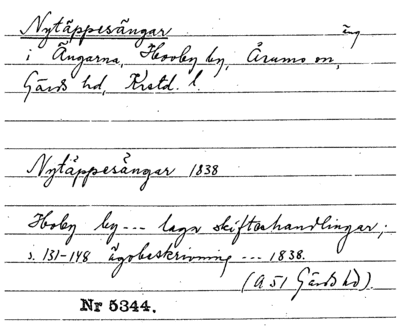 Nytäppesängar äng
i Ängarna, Hovby by, Årams on,
Gärds hd, Krstd. l.
Nytäppesängar 1838
Hoby by --- laga skifteshandlingar;
s. 131-148 ägobeskrivning --- 1838.
(A 51 Gärds hd).
Nr 5344.